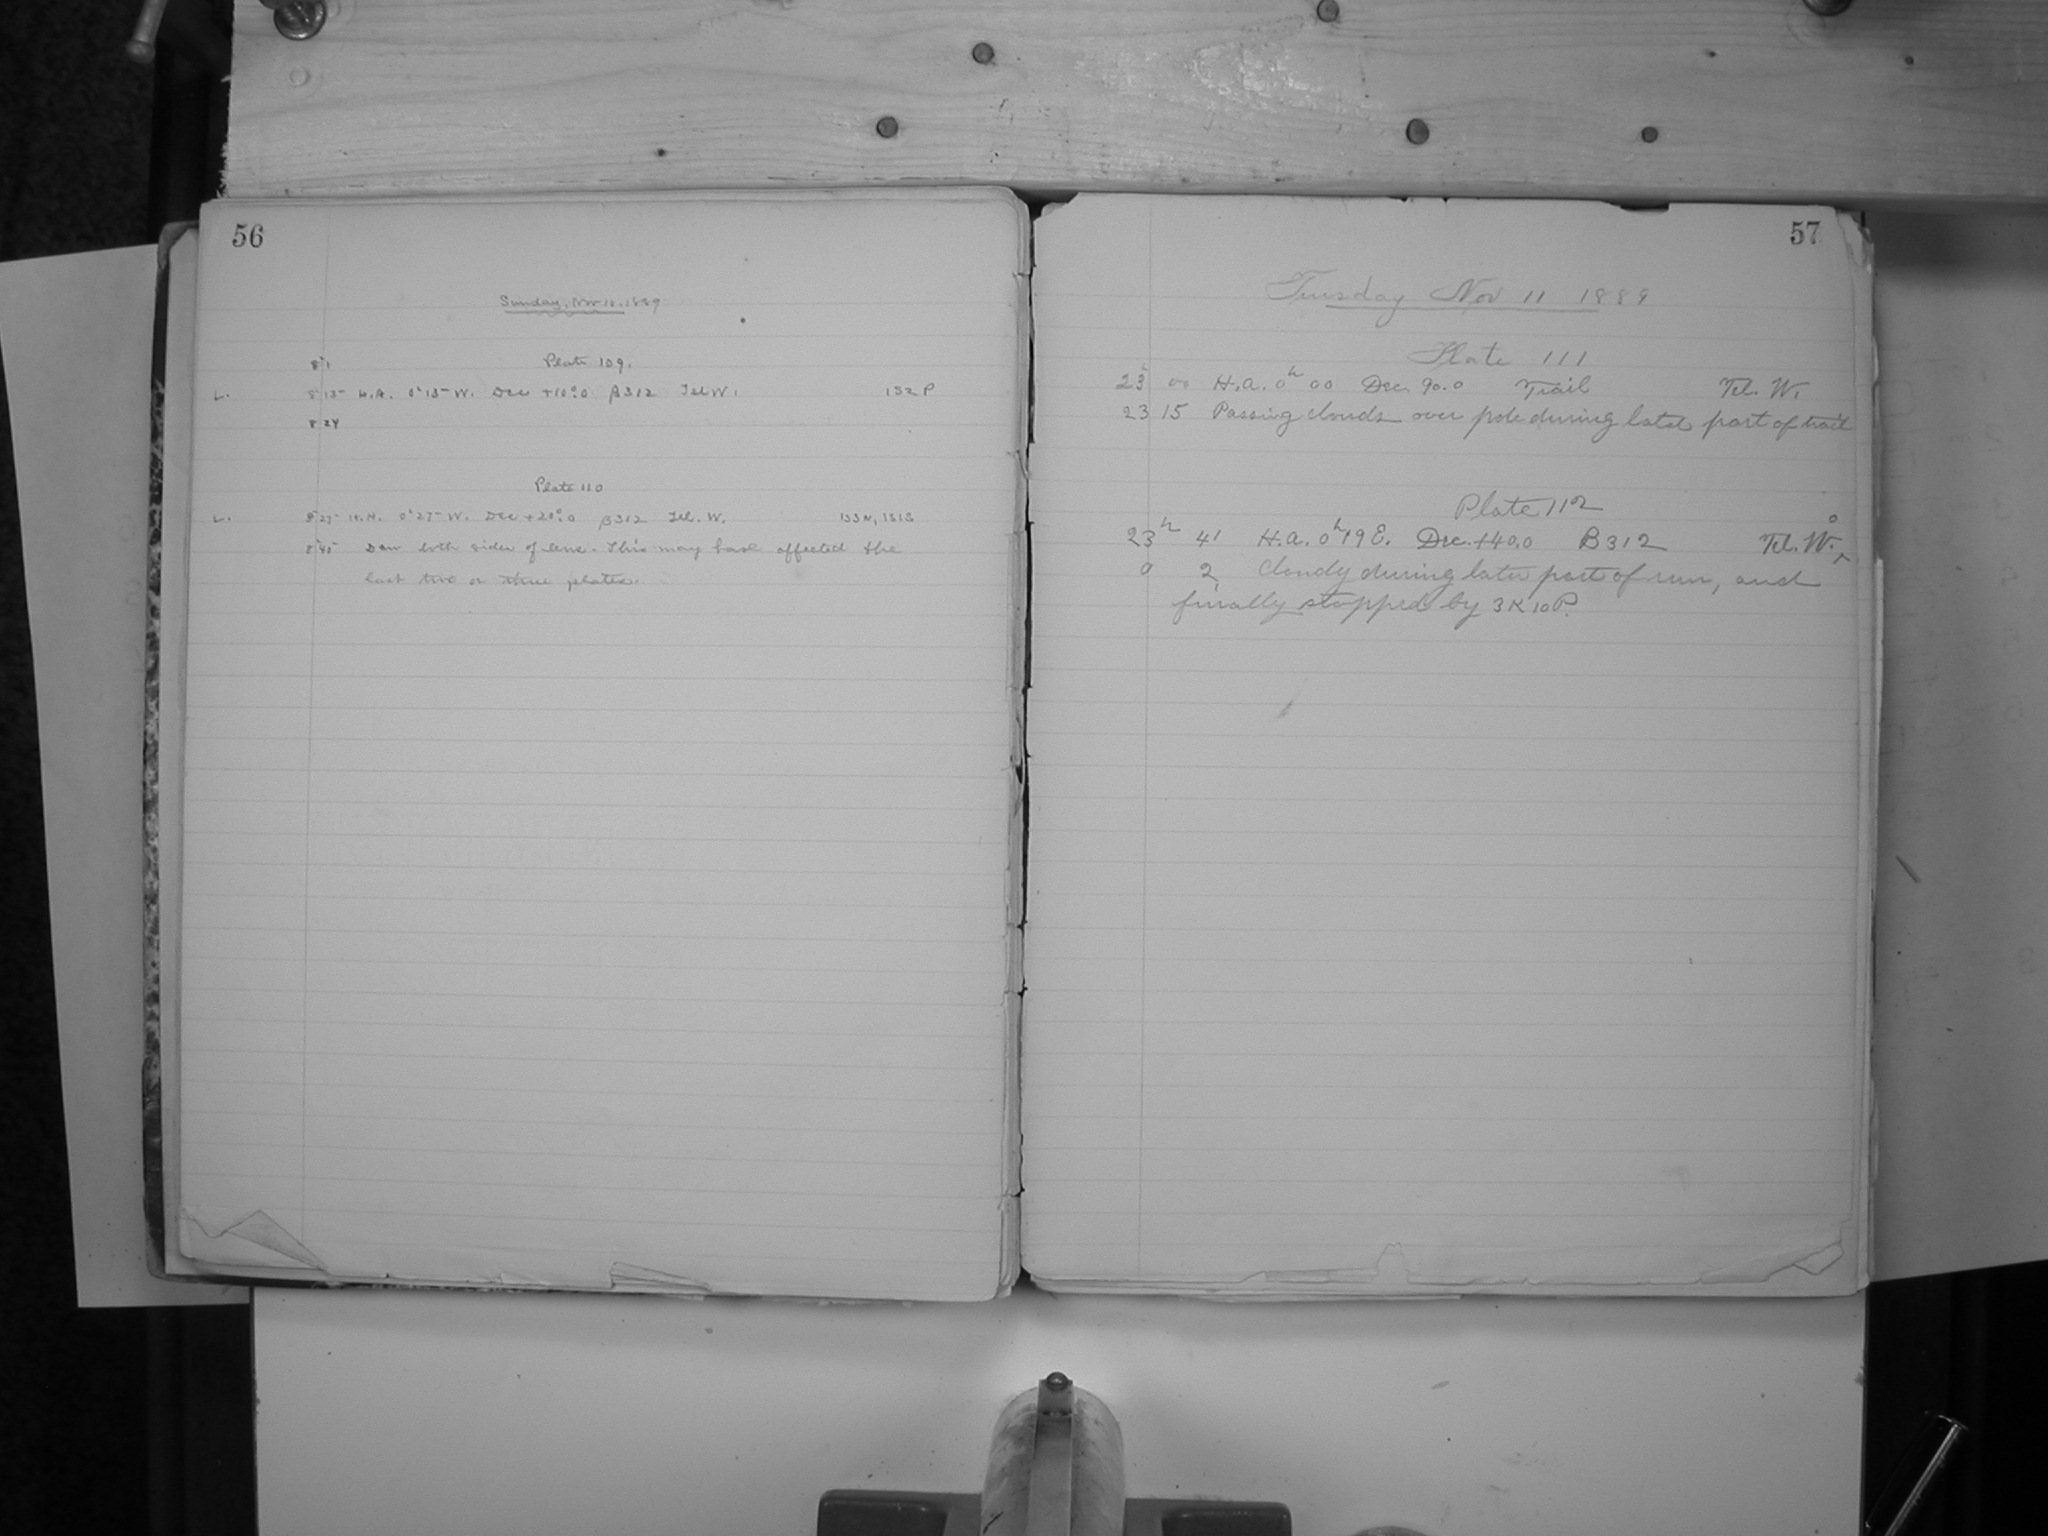 56
Sunday, Nov 10, 1889
8 1
Plate 109.
L. 8 15 H.A. 0h 15m W. Dec +10°.0 B312 Tel W. 152 P
8 24
Plate 110
L. 8 27 H.A. 0h 27m W. Dec +20°.0 B312 Tel. W. 153N, 151S
8 45 Dew both sides of lens. This may have affected the
last two or three plates.
57
Tuesday Nov 11 1889
Plate 111
23h 00 H.A. 0h 00 Dec. 90.0 Trail Tel. W.
23 15 Passing clouds over pole during later part of trail
Plate 112
23h 41 H.A. 0h 19 E. Dec. +40.0 B312 Tel. W.
0 2 Cloudy during later part of run, and
finally stopped by 3K10P.